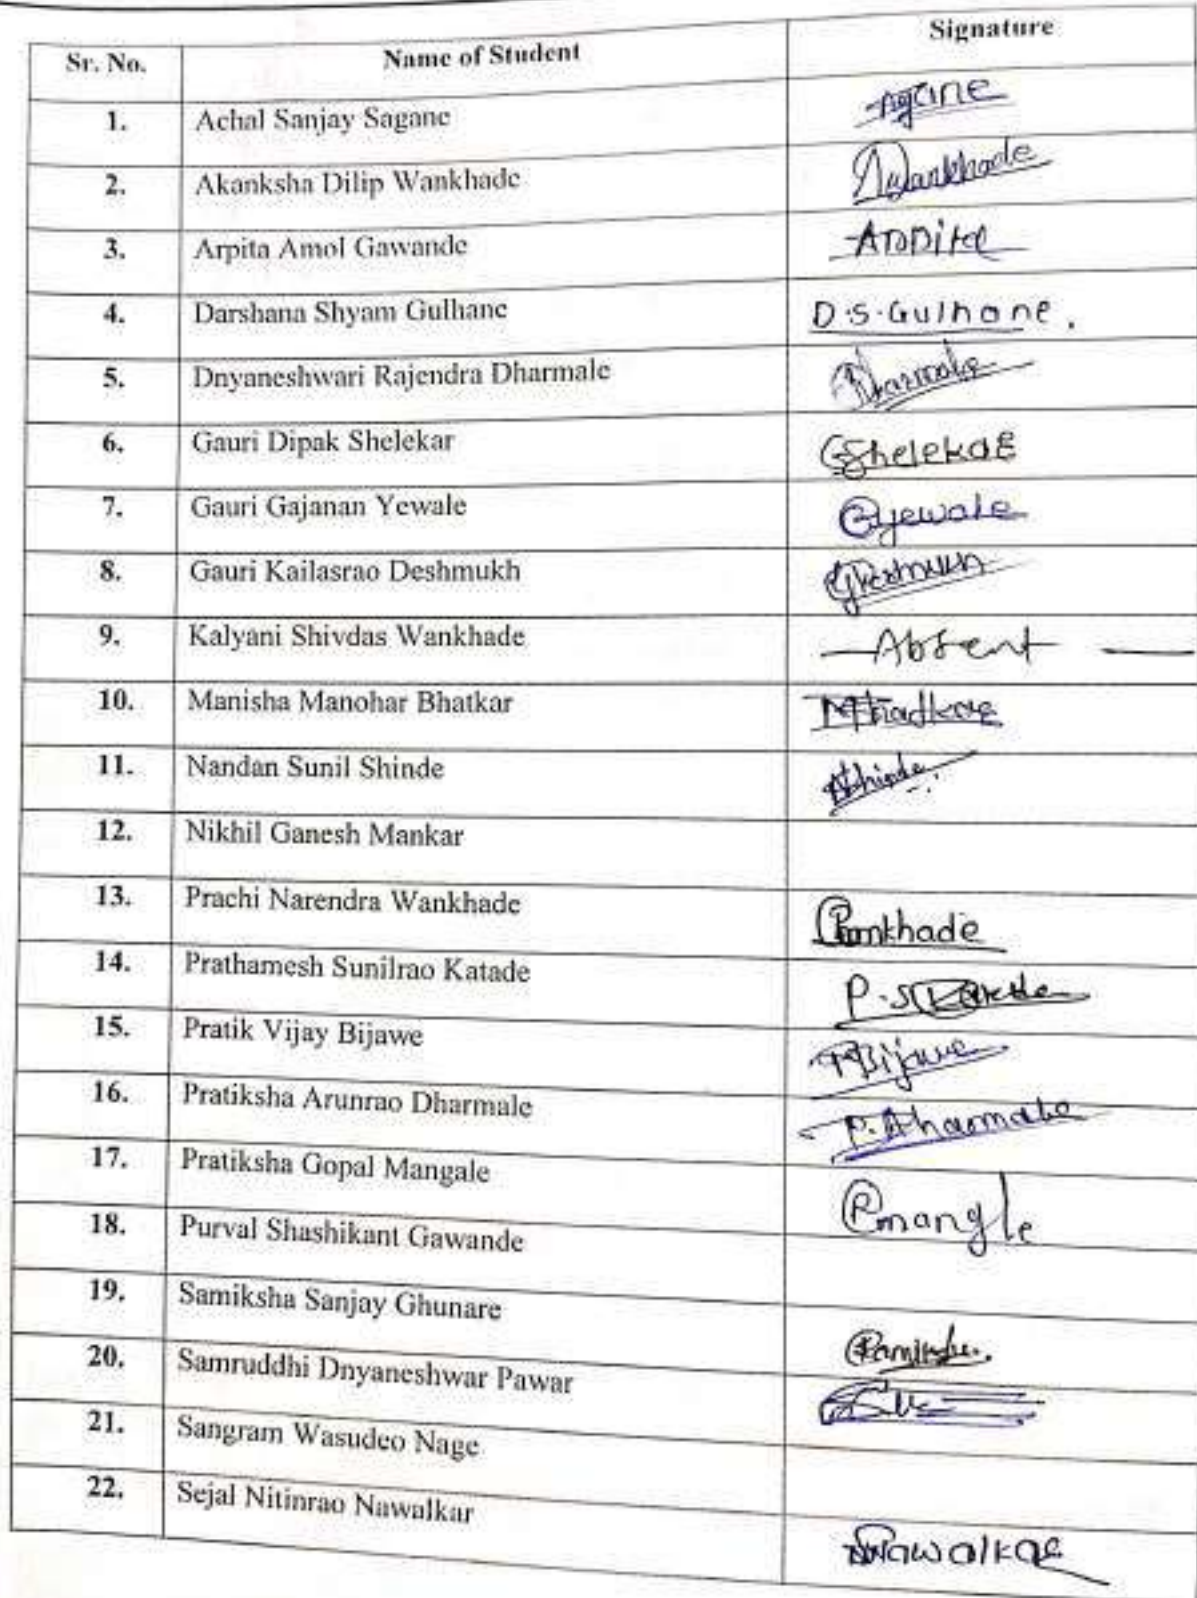 Sr. No. Name of Student Signature
1. Achal Sanjay Sagane
2. Akanksha Dilip Wankhade Awankhade
3. Arpita Amol Gawande Arpita
4. Darshana Shyam Gulhane D.S.Gulhane.
5. Dnyaneshwari Rajendra Dharmale Dharmale
6. Gauri Dipak Shelekar GShelekar
7. Gauri Gajanan Yewale Gyewale
8. Gauri Kailasrao Deshmukh
9. Kalyani Shivdas Wankhade — Absent —
10. Manisha Manohar Bhatkar
11. Nandan Sunil Shinde NShinde
12. Nikhil Ganesh Mankar
13. Prachi Narendra Wankhade
14. Prathamesh Sunilrao Katade
15. Pratik Vijay Bijawe PBijawe
16. Pratiksha Arunrao Dharmale P.Dharmale
17. Pratiksha Gopal Mangale Pmangle
18. Purval Shashikant Gawande
19. Samiksha Sanjay Ghunare
20. Samruddhi Dnyaneshwar Pawar
21. Sangram Wasudeo Nage
22. Sejal Nitinrao Nawalkar